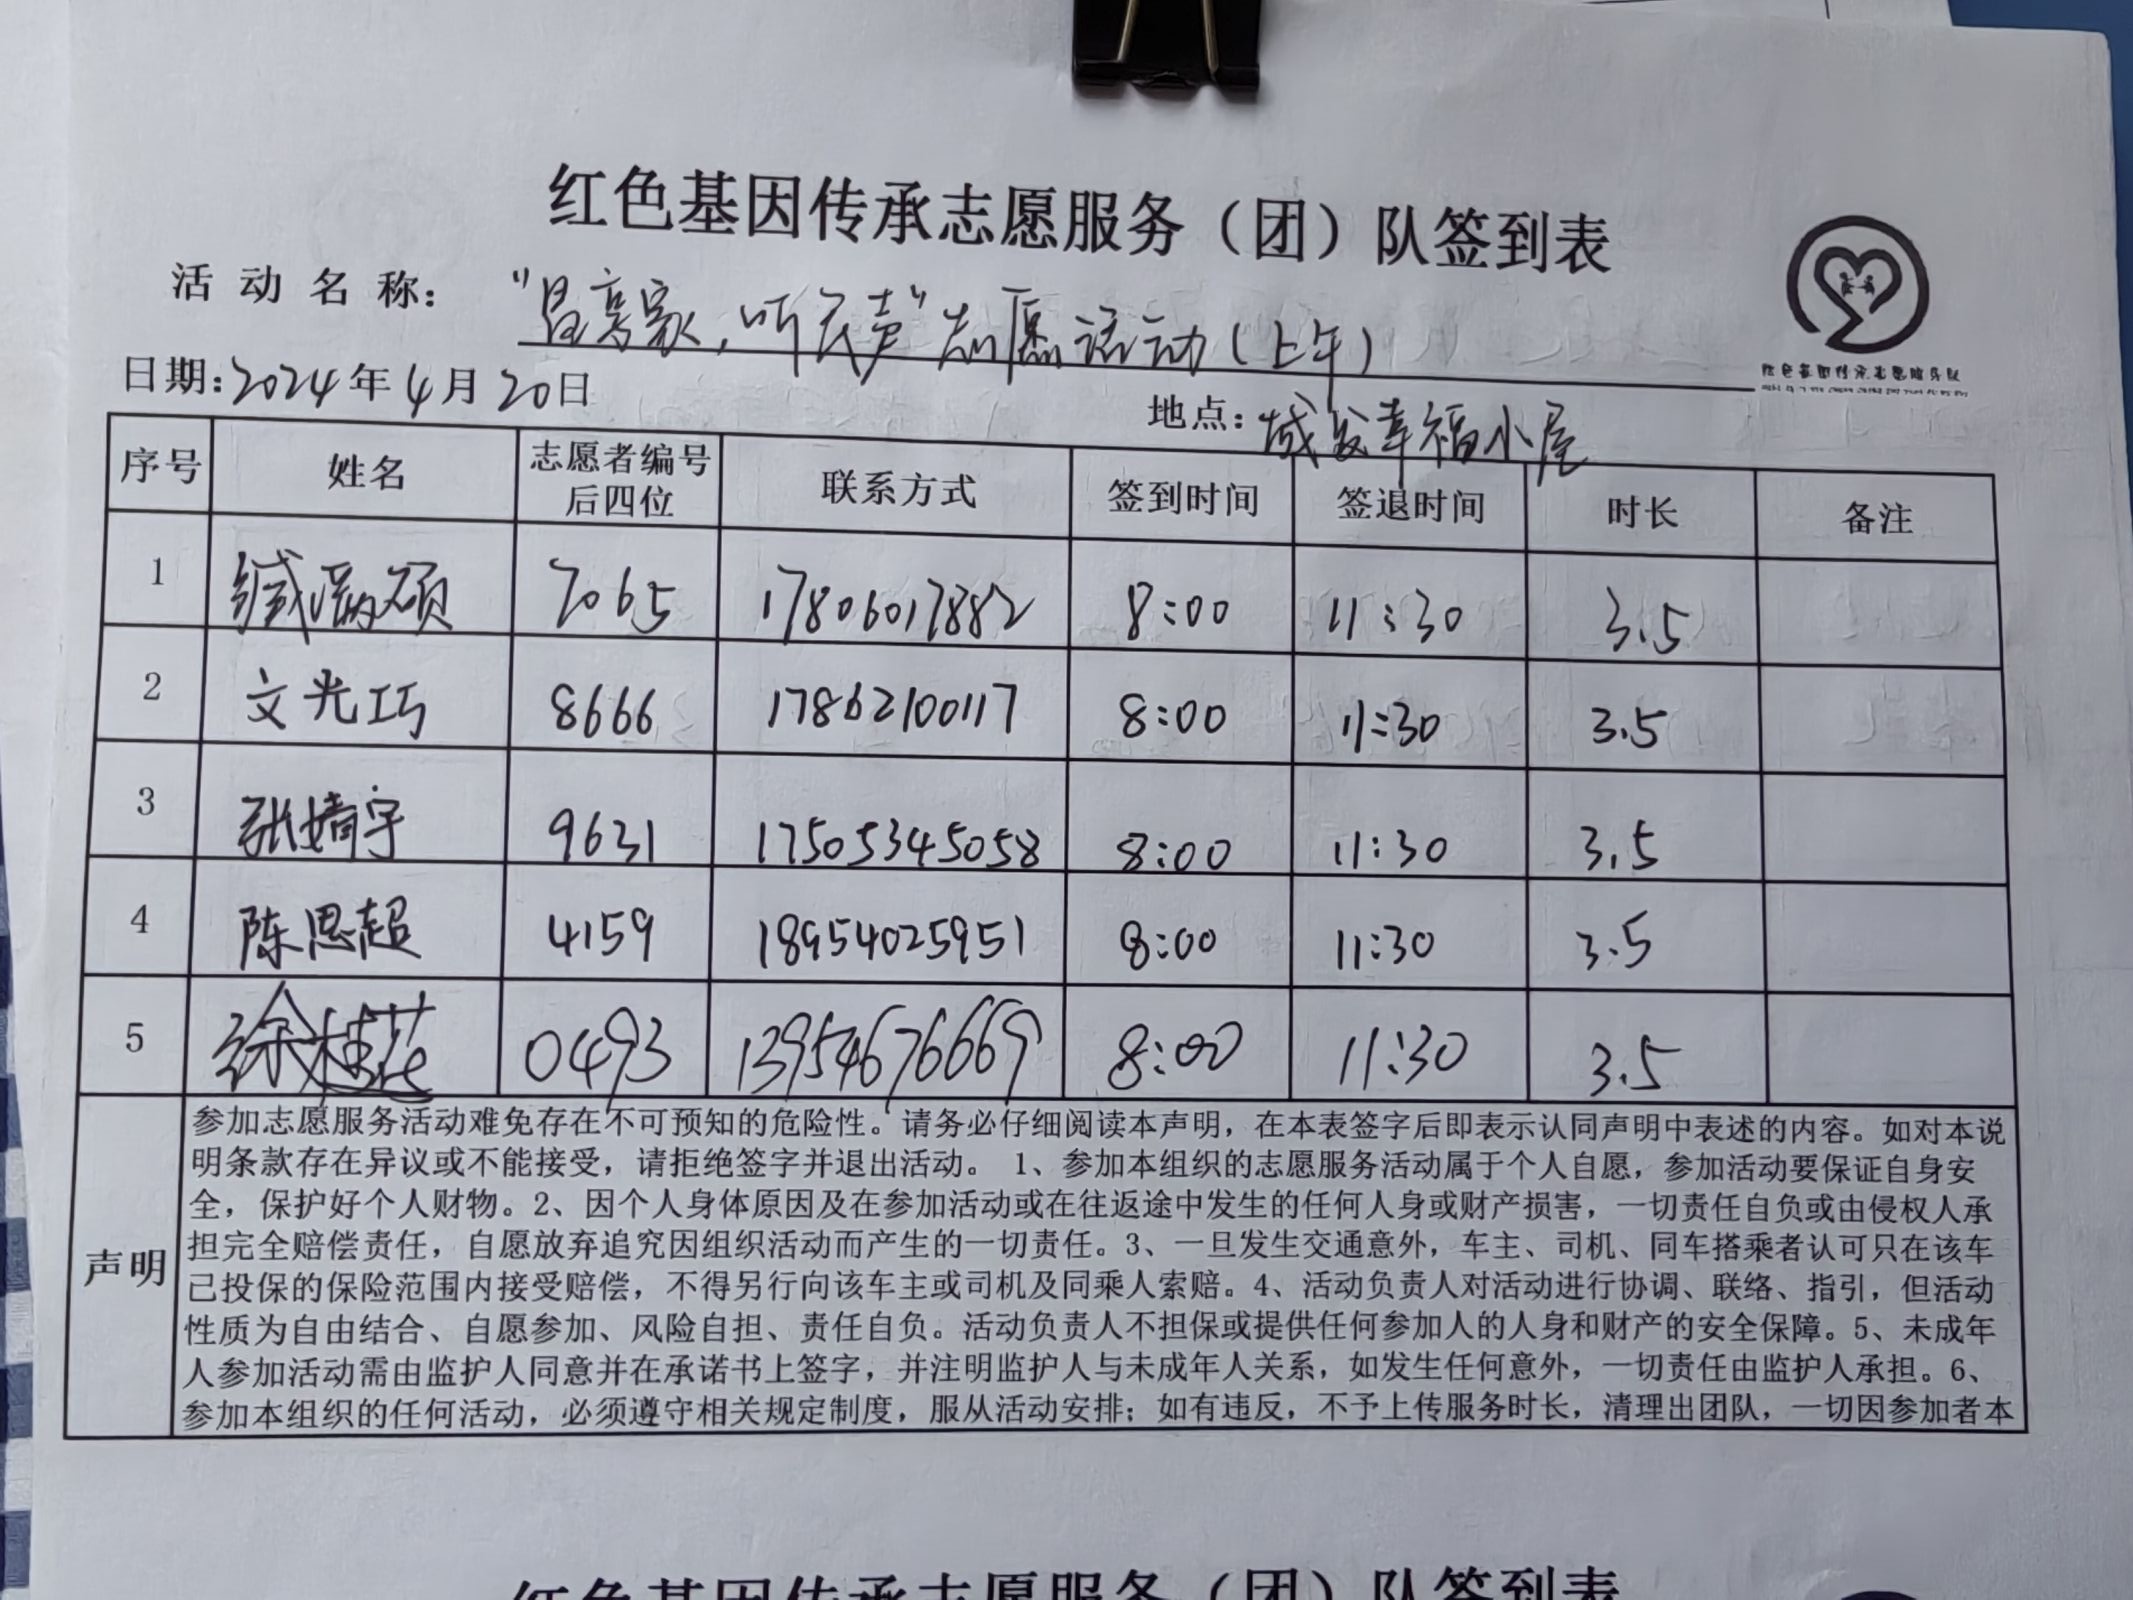 红色基因传承志愿服务（团）队签到表
活动名称："昌享家，听民声"志愿活动(上午)
日期:2024年4月20日
地点:城发幸福小屋
序号 姓名 志愿者编号后四位 联系方式 签到时间 签退时间 时长 备注
1 7065 17806017882 8:00 11:30 3.5
2 文光巧 8666 17862100117 8:00 11:30 3.5
3 张婧宇 9631 17505345058 8:00 11:30 3.5
4 陈思超 4159 18954025951 8:00 11:30 3.5
5 徐桂花 0493 13954676669 8:00 11:30 3.5
声明
参加志愿服务活动难免存在不可预知的危险性。请务必仔细阅读本声明，在本表签字后即表示认同声明中表述的内容。如对本说
明条款存在异议或不能接受，请拒绝签字并退出活动。 1、参加本组织的志愿服务活动属于个人自愿，参加活动要保证自身安
全，保护好个人财物。2、因个人身体原因及在参加活动或在往返途中发生的任何人身或财产损害，一切责任自负或由侵权人承
担完全赔偿责任，自愿放弃追究因组织活动而产生的一切责任。3、一旦发生交通意外，车主、司机、同车搭乘者认可只在该车
已投保的保险范围内接受赔偿，不得另行向该车主或司机及同乘人索赔。4、活动负责人对活动进行协调、联络、指引，但活动
性质为自由结合、自愿参加、风险自担、责任自负。活动负责人不担保或提供任何参加人的人身和财产的安全保障。5、未成年
人参加活动需由监护人同意并在承诺书上签字，并注明监护人与未成年人关系，如发生任何意外，一切责任由监护人承担。6、
参加本组织的任何活动，必须遵守相关规定制度，服从活动安排；如有违反，不予上传服务时长，清理出团队，一切因参加者本
红色基因传承志愿服务（团）队签到表